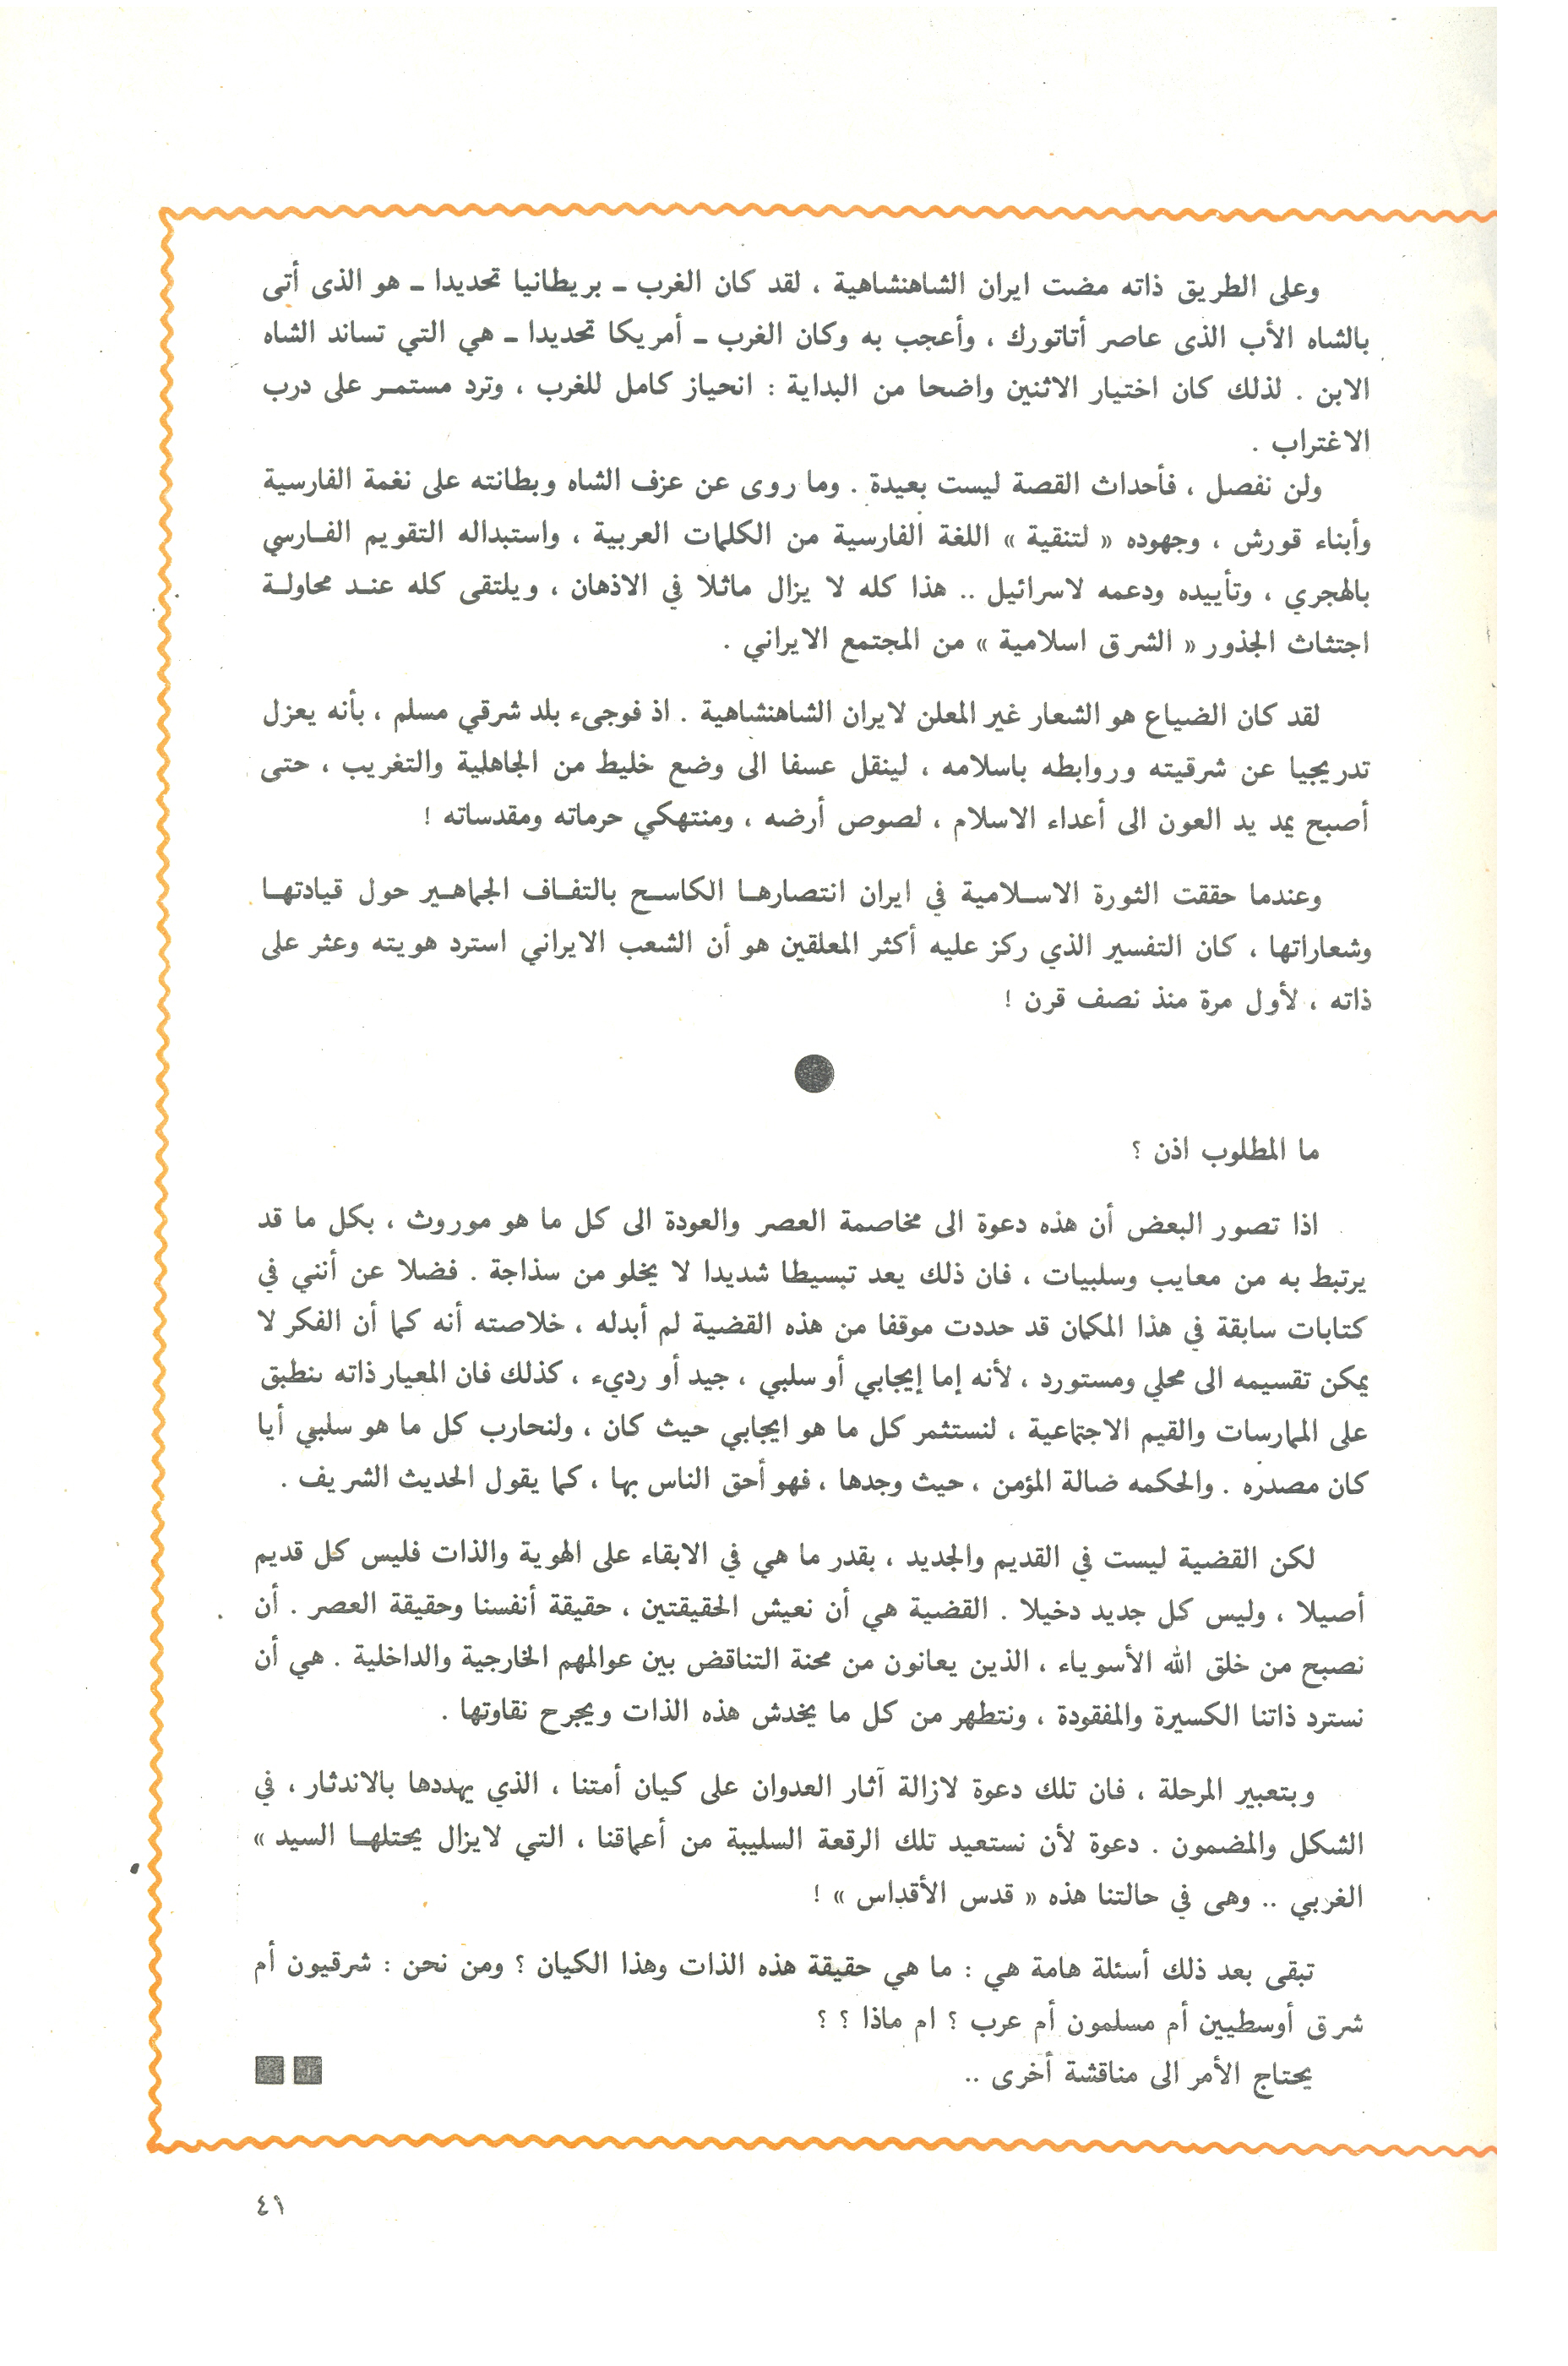 وعلى الطريق ذاته مضت ايران الشاهنشاهية ، لقد كان الغرب ــ بريطانيا تحديدا ــ هو الذى أتى
بالشاه الأب الذى عاصر أتاتورك ، وأعجب به وكان الغرب ــ أمريكا تحديدا ــ هي التي تساند الشاه
الابن . لذلك كان اختيار الاثنين واضحا من البداية : انحياز كامل للغرب ، وترد مستمـر على درب
الاغتراب .
ولن نفصل ، فأحداث القصة ليست بعيدة . وما روى عن عزف الشاه وبطانته على نغمة الفارسية
وأبناء قورش ، وجهوده « لتنقية » اللغة الفارسية من الكلمات العربية ، واستبداله التقويم الفـارسي
بالهجري ، وتأييده ودعمه لاسرائيل .. هذا كله لا يزال ماثلا في الاذهان ، ويلتقى كله عنـد محاولـة
اجتثاث الجذور « الشرق اسلامية » من المجتمع الايراني .
لقد كان الضياع هو الشعار غير المعلن لايران الشاهنشاهية . اذ فوجىء بلد شرقي مسلم ، بأنه يعزل
تدريجيا عن شرقيته وروابطه باسلامه ، لينقل عسفا الى وضع خليط من الجاهلية والتغريب ، حتى
أصبح يمد يد العون الى أعداء الاسلام ، لصوص أرضه ، ومنتهكي حرماته ومقدساته !
وعندما حققت الثورة الاسـلامية في ايران انتصارهـا الكاسـح بالتفـاف الجماهـير حول قيادتهـا
وشعاراتها ، كان التفسير الذي ركز عليه أكثر المعلقين هو أن الشعب الايراني استرد هويته وعثر على
ذاته ، لأول مرة منذ نصف قرن !
ما المطلوب اذن ؟
اذا تصور البعض أن هذه دعوة الى مخاصمة العصر والعودة الى كل ما هو موروث ، بكل ما قد
يرتبط به من معايب وسلبيات ، فان ذلك يعد تبسيطا شديدا لا يخلو من سذاجة . فضلا عن أنني في
كتابات سابقة في هذا المكان قد حددت موقفا من هذه القضية لم أبدله ، خلاصته أنه كما أن الفكر لا
يمكن تقسيمه الى محلي ومستورد ، لأنه إما إيجابي أو سلبي ، جيد أو رديء ، كذلك فان المعيار ذاته ينطبق
على الممارسات والقيم الاجتماعية ، لنستثمر كل ما هو ايجابي حيث كان ، ولنحارب كل ما هو سلبي أيا
كان مصدره . والحكمه ضالة المؤمن ، حيث وجدها ، فهو أحق الناس بها ، كما يقول الحديث الشريف .
لكن القضية ليست في القديم والجديد ، بقدر ما هي في الابقاء على الهوية والذات فليس كل قديم
أصيلا ، وليس كل جديد دخيلا . القضية هي أن نعيش الحقيقتين ، حقيقة أنفسنا وحقيقة العصر . أن
نصبح من خلق الله الأسوياء ، الذين يعانون من محنة التناقض بين عوالمهم الخارجية والداخلية . هي أن
نسترد ذاتنا الكسيرة والمفقودة ، ونتطهر من كل ما يخدش هذه الذات ويجرح نقاوتها .
وبتعبير المرحلة ، فان تلك دعوة لازالة آثار العدوان على كيان أمتنا ، الذي يهددها بالاندثار ، في
الشكل والمضمون . دعوة لأن نستعيد تلك الرقعة السليبة من أعماقنا ، التي لايزال يحتلهـا السيد »
الغربي .. وهى في حالتنا هذه « قدس الأقداس » !
تبقى بعد ذلك أسئلة هامة هي : ما هي حقيقة هذه الذات وهذا الكيان ؟ ومن نحن : شرقيون أم
شرق أوسطيين أم مسلمون أم عرب ؟ ام ماذا ؟ ؟
يحتاج الأمر الى مناقشة أخرى ..
٤١